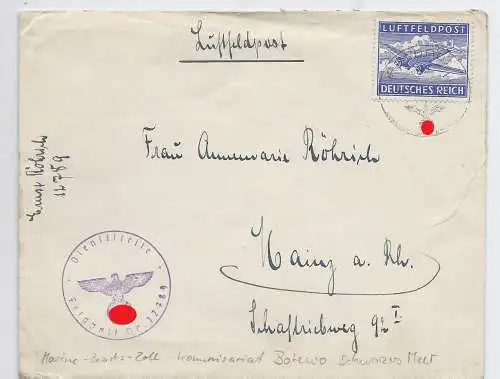 Luftfeldpost
LUFTFELDPOST
DEUTSCHES REICH
Ernst Röhrich
12789
Frau Annemarie Röhrich
Mainz a. Rh.
Schaftriebweg 92 I
Dienststelle
Feldpost Nr. 12789
Marine - Zoll - Kommissariat Schwarzes Meer